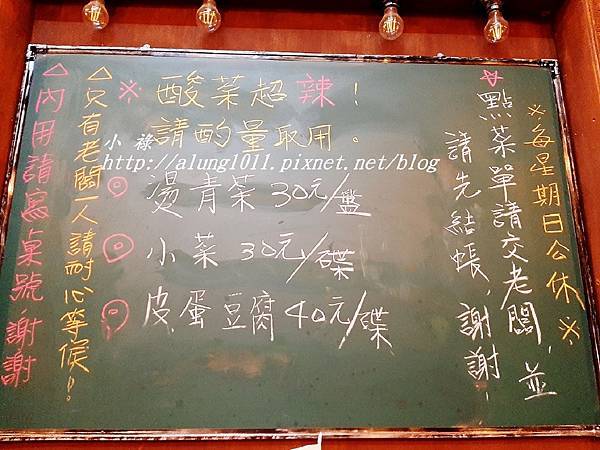 ※每星期日公休※
☆點菜單請交老闆,並
請先結帳,謝謝!
※酸菜超辣!
請酌量取用。
◎燙青菜30元/盤
◎小菜30元/碟
◎皮蛋豆腐40元/碟
△只有老闆一人請耐心等候!
△內用請寫桌號,謝謝
小 祿
http://alung1011.pixnet.net/blog